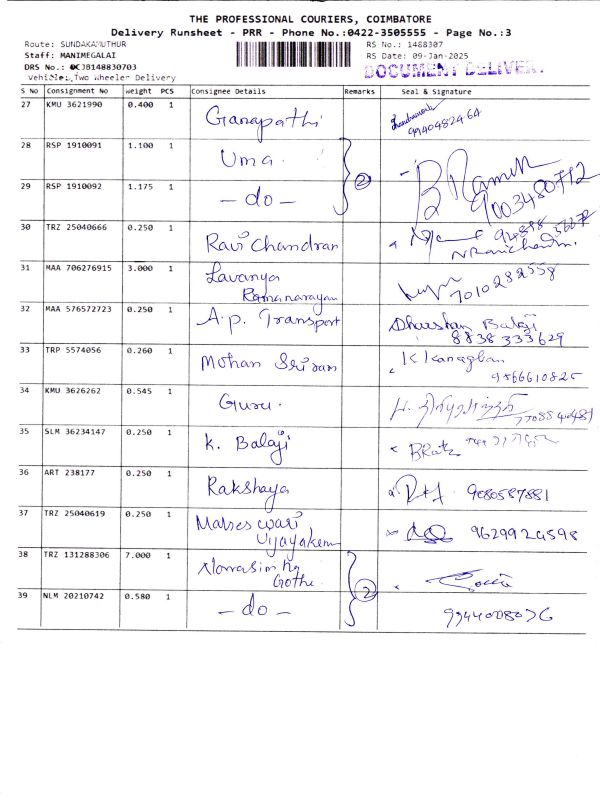 THE PROFESSIONAL COURIERS, COIMBATORE
Delivery Runsheet - PRR - Phone No.:0422-3505555 - Page No.:3
Route: SUNDAKAMUTHUR RS No.: 1488307
Staff: MANIMEGALAI RS Date: 09-Jan-2025
DRS No.: CJB148830703 DOCUMENT DELIVER.
Vehicles,Two Wheeler Delivery
S No Consignment No Weight PCS Consignee Details Remarks Seal & Signature
27 KMU 3621990 0.400 1 Ganapathi
9940482464
28 RSP 1910091 1.100 1 Uma.
29 RSP 1910092 1.175 1 - do - 2 9003480772
30 TRZ 25040666 0.250 1 Ravi Chandran
N Ravichandran.
31 MAA 706276915 3.000 1 Lavanya
Ramanarayan 7010282558
32 MAA 576572723 0.250 1 A.p. Transport Dharshan Balaji
8838333629
33 TRP 5574056 0.260 1 Mohan Sriram K Kanagban
9566610825
34 KMU 3626262 0.545 1 Guru.
35 SLM 36234147 0.250 1 K. Balaji
36 ART 238177 0.250 1 Rakshaya 9080587881
37 TRZ 25040619 0.250 1 Maheswari
Vijayakem 9629929598
38 TRZ 131288306 7.000 1 Narrasimha
Gothe.
39 NLM 20210742 0.580 1 - do - 2 9944008076